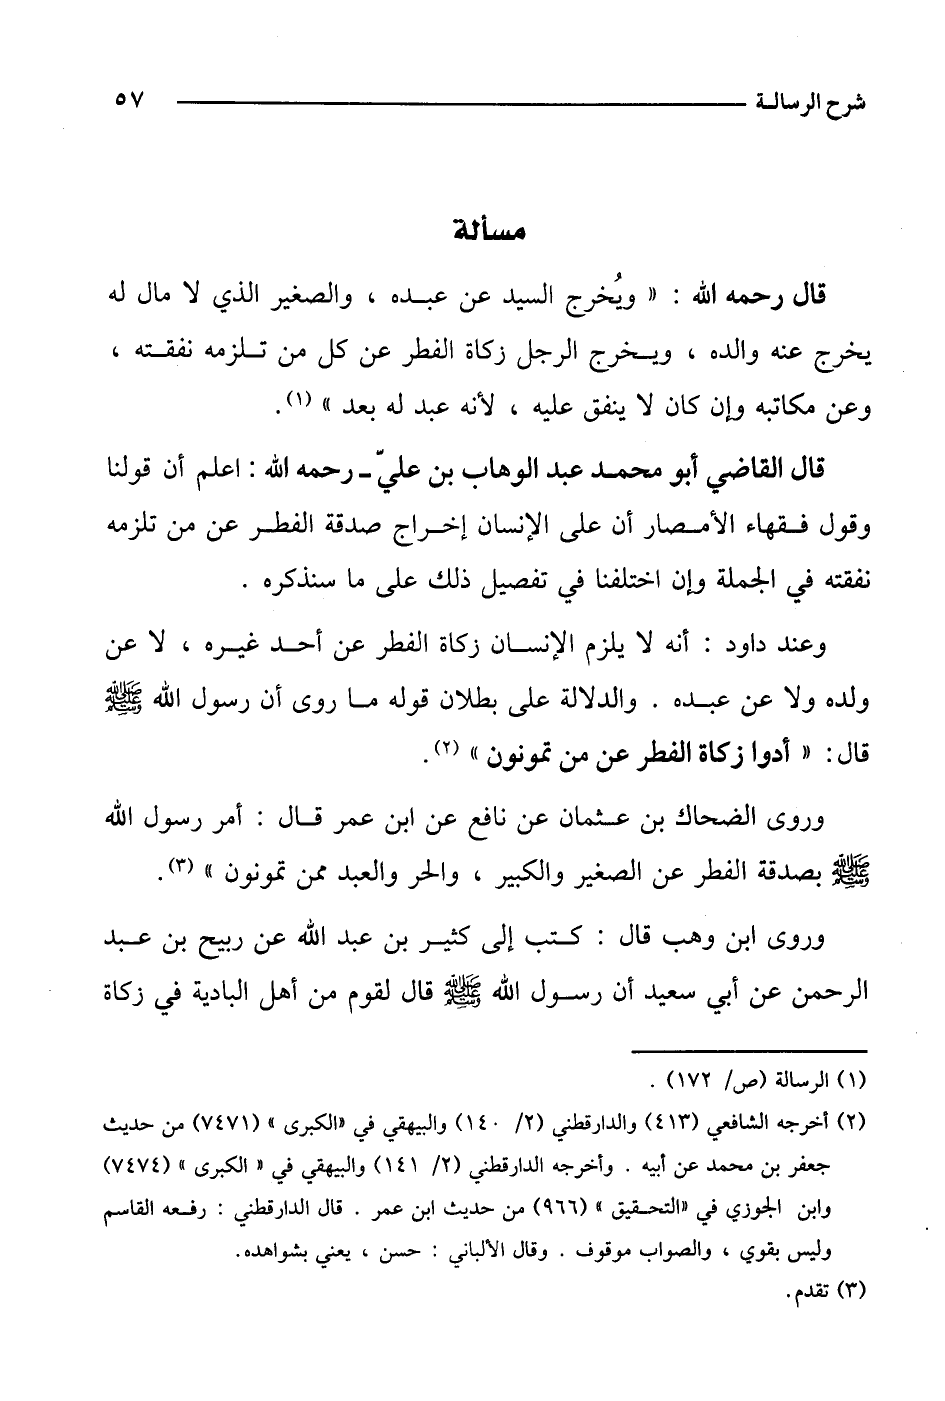 شرح الرسالة ٥٧
مسألة
قال رحمه الله : « ويُخرج السيد عن عبده ، والصغير الذي لا مال له
يخرج عنه والده ، ويخرج الرجل زكاة الفطر عن كل من تلزمه نفقته ،
وعن مكاتبه وإن كان لا ينفق عليه ، لأنه عبد له بعد » (١).
قال القاضي أبو محمد عبد الوهاب بن عليّ ـ رحمه الله : اعلم أن قولنا
وقول فقهاء الأمصار أن على الإنسان إخراج صدقة الفطر عن من تلزمه
نفقته في الجملة وإن اختلفنا في تفصيل ذلك على ما سنذكره .
وعند داود : أنه لا يلزم الإنسان زكاة الفطر عن أحد غيره ، لا عن
ولده ولا عن عبده . والدلالة على بطلان قوله ما روى أن رسول الله ﷺ
قال : « أدوا زكاة الفطر عن من تمونون » (٢).
وروى الضحاك بن عثمان عن نافع عن ابن عمر قال : أمر رسول الله
ﷺ بصدقة الفطر عن الصغير والكبير ، والحر والعبد ممن تمونون » (٣).
وروى ابن وهب قال : كتب إلى كثير بن عبد الله عن ربيح بن عبد
الرحمن عن أبي سعيد أن رسول الله ﷺ قال لقوم من أهل البادية في زكاة
(١) الرسالة (ص/ ١٧٢) .
(٢) أخرجه الشافعي (٤١٣) والدارقطني (٢/ ١٤٠) والبيهقي في «الكبرى » (٧٤٧١) من حديث
جعفر بن محمد عن أبيه . وأخرجه الدارقطني (٢/ ١٤١) والبيهقي في « الكبرى » (٧٤٧٤)
وابن الجوزي في «التحقيق » (٩٦٦) من حديث ابن عمر . قال الدارقطني : رفعه القاسم
وليس بقوي ، والصواب موقوف . وقال الألباني : حسن ، يعني بشواهده.
(٣) تقدم.